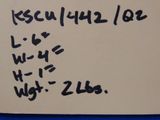 KSCU/442/02
L-6"
W-4"
H-1"
Wgt.- 2Lbs.